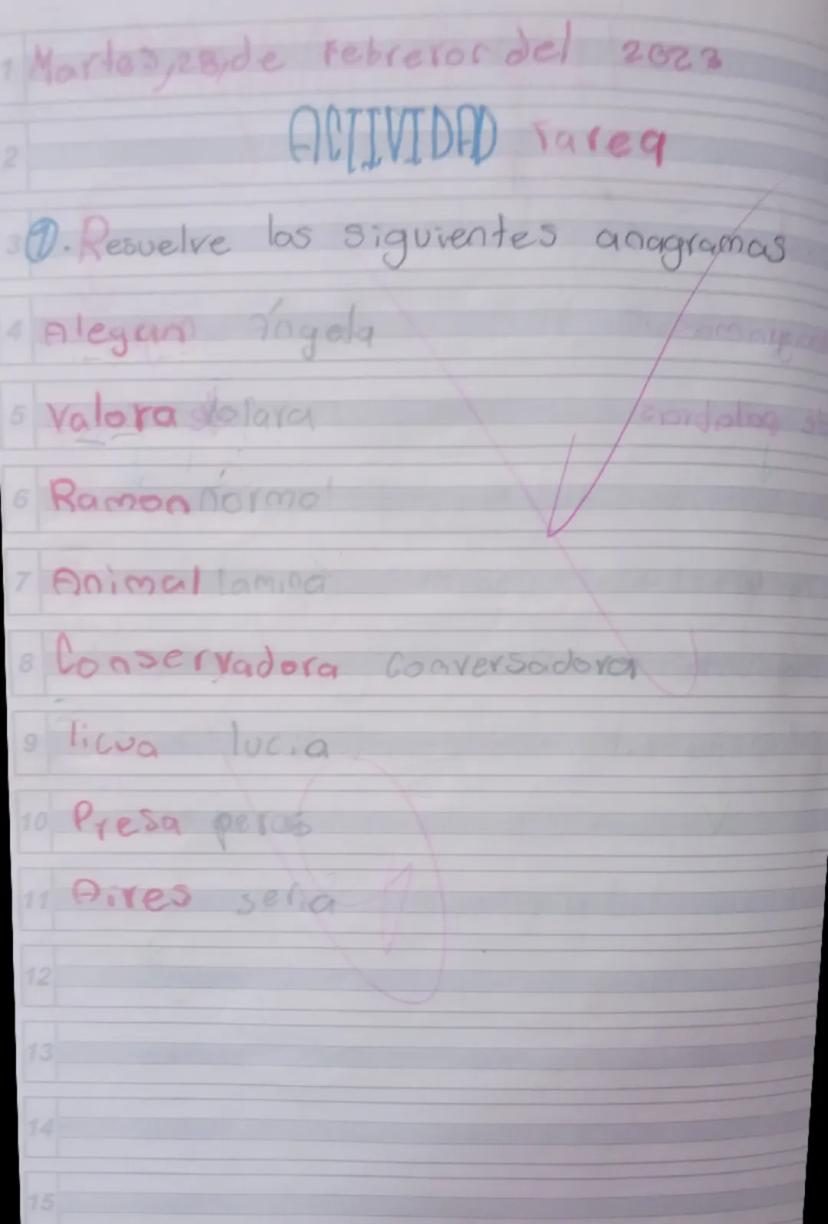 1 Martes,28,de Febreror del 2023
2 ACTIVIDAD Tarea
3 1. Resuelve los siguientes anagramas
4 Alegan ángela
5 Valora volara
6 Ramon normá
7 Animal lamina
8 Conservadora conversadora
9 licua lucia
10 Presa peras
11 Aires seria
12
13
14
15